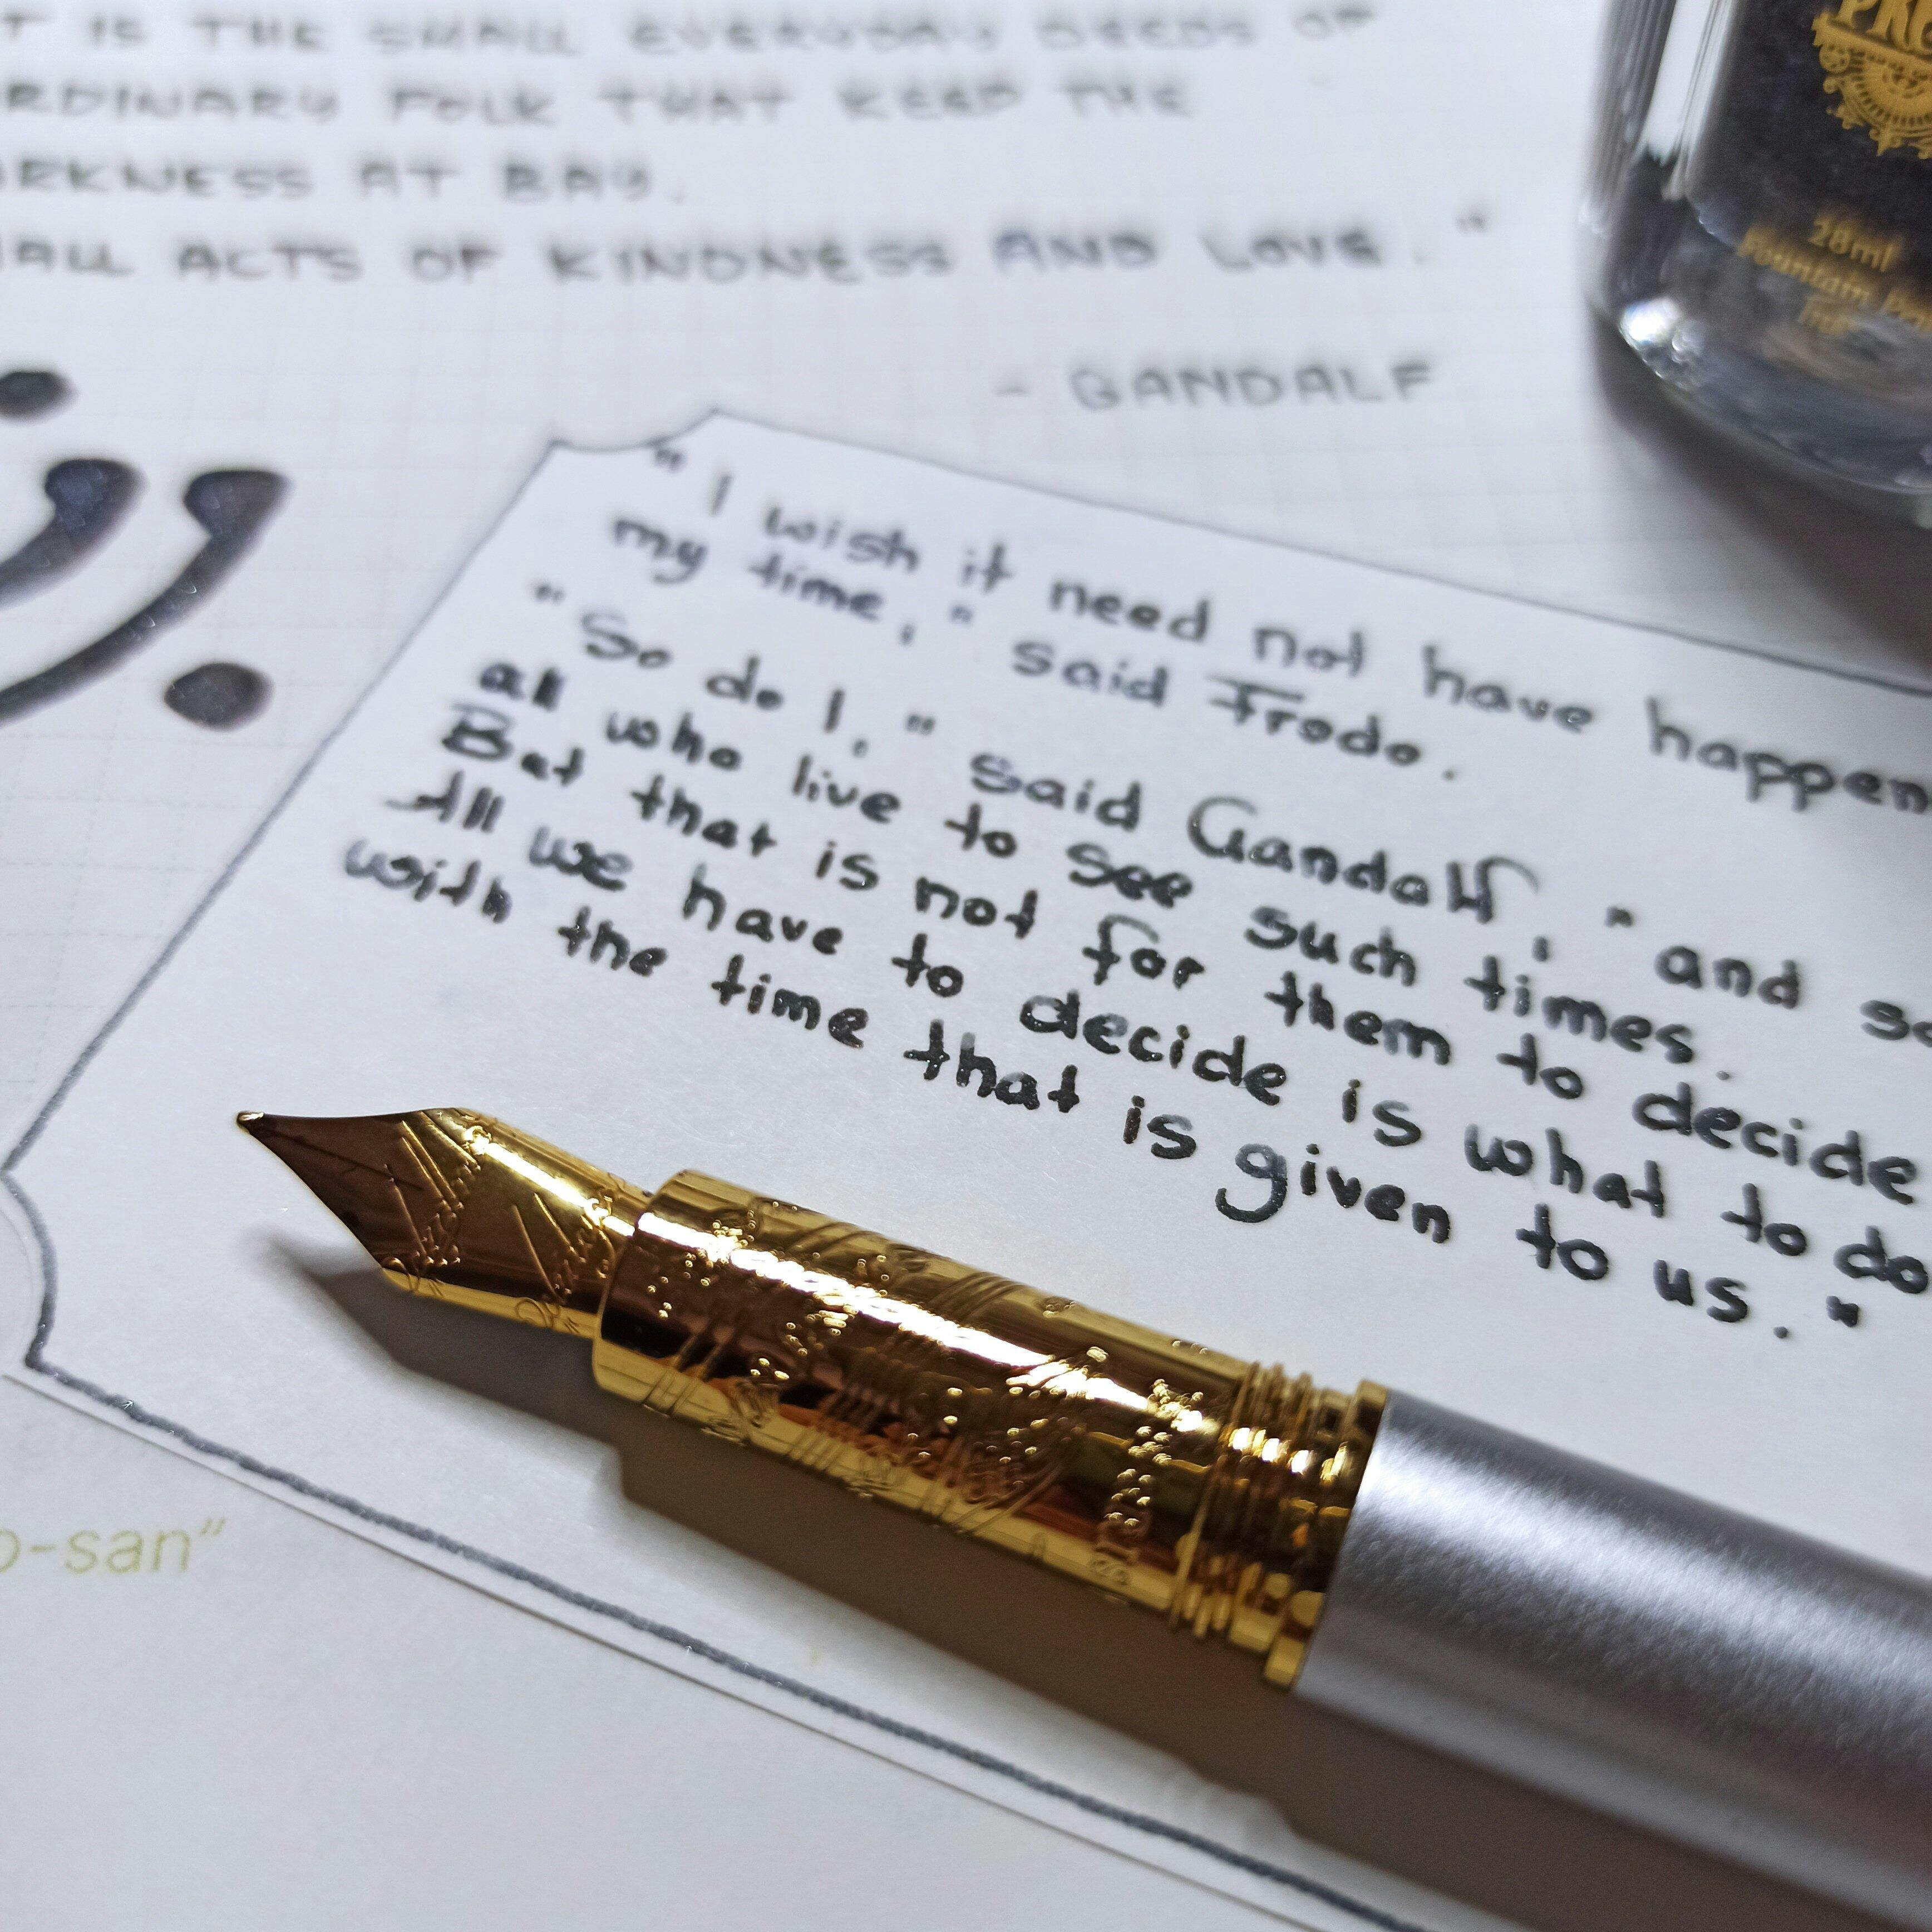 IS THE SMALL EVERYDAY DEEDS OF
ORDINARY FOLK THAT KEEP THE
DARKNESS AT BAY.
SMALL ACTS OF KINDNESS AND LOVE."
- GANDALF
"I wish it need not have happen
my time," said Frodo.
"So do I," said Gandalf, "and so
all who live to see such times.
But that is not for them to decide
All we have to decide is what to do
with the time that is given to us."
28ml
Fountain Pen
Ink
o-san"